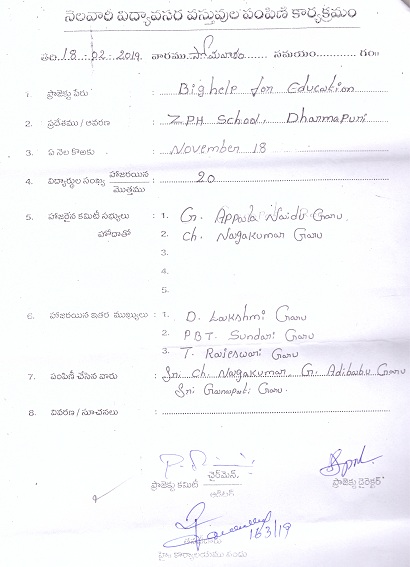 నెలవారి విద్యావసర వస్తువుల పంపిణీ కార్యక్రమం
తేది 18-02-2019 వారము సోమవారం సమయం గం॥
1. ప్రాజెక్టు పేరు : Bighelp for Education
2. ప్రదేశము / ఆవరణ : ZPH School, Dharmapuri
3. ఏ నెల కొఱకు : November 18
4. విద్యార్థుల సంఖ్య హాజరయిన / మొత్తము : 20
5. హాజరైన కమిటీ సభ్యులు : 1. G. Appala Naidu Garu
హోదాతో 2. Ch. Nagakumar Garu
3.
4.
5.
6. హాజరయిన ఇతర ముఖ్యులు : 1. D. Lakshmi Garu
2. PBT. Sundari Garu
3. T. Rajeswari Garu
7. పంపిణీ చేసిన వారు : Sri. Ch. Nagakumar, G. Adibabu Garu
Sri Ganapati Garu.
8. వివరణ / సూచనలు :
ఛైర్మెన్,
ప్రాజెక్టు కమిటీ
ప్రాజెక్టు డైరెక్టర్
16/3/19